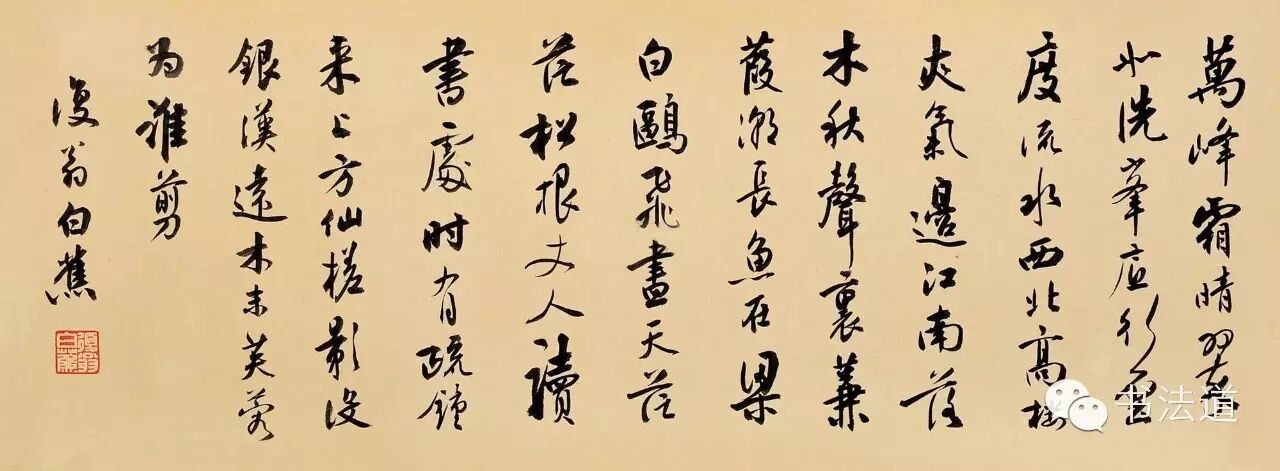 萬峰霜晴翠
如洗峯底行雲
度流水西北高樓
爽氣邊江南落
木秋聲裏蒹
葭潮長魚在梁
白鷗飛盡天茫
茫松根丈人讀
書處時有疏鐘
來上方仙槎影沒
銀漢遠木末芙蓉
为誰剪
復翁白蕉
復翁白蕉
书法道